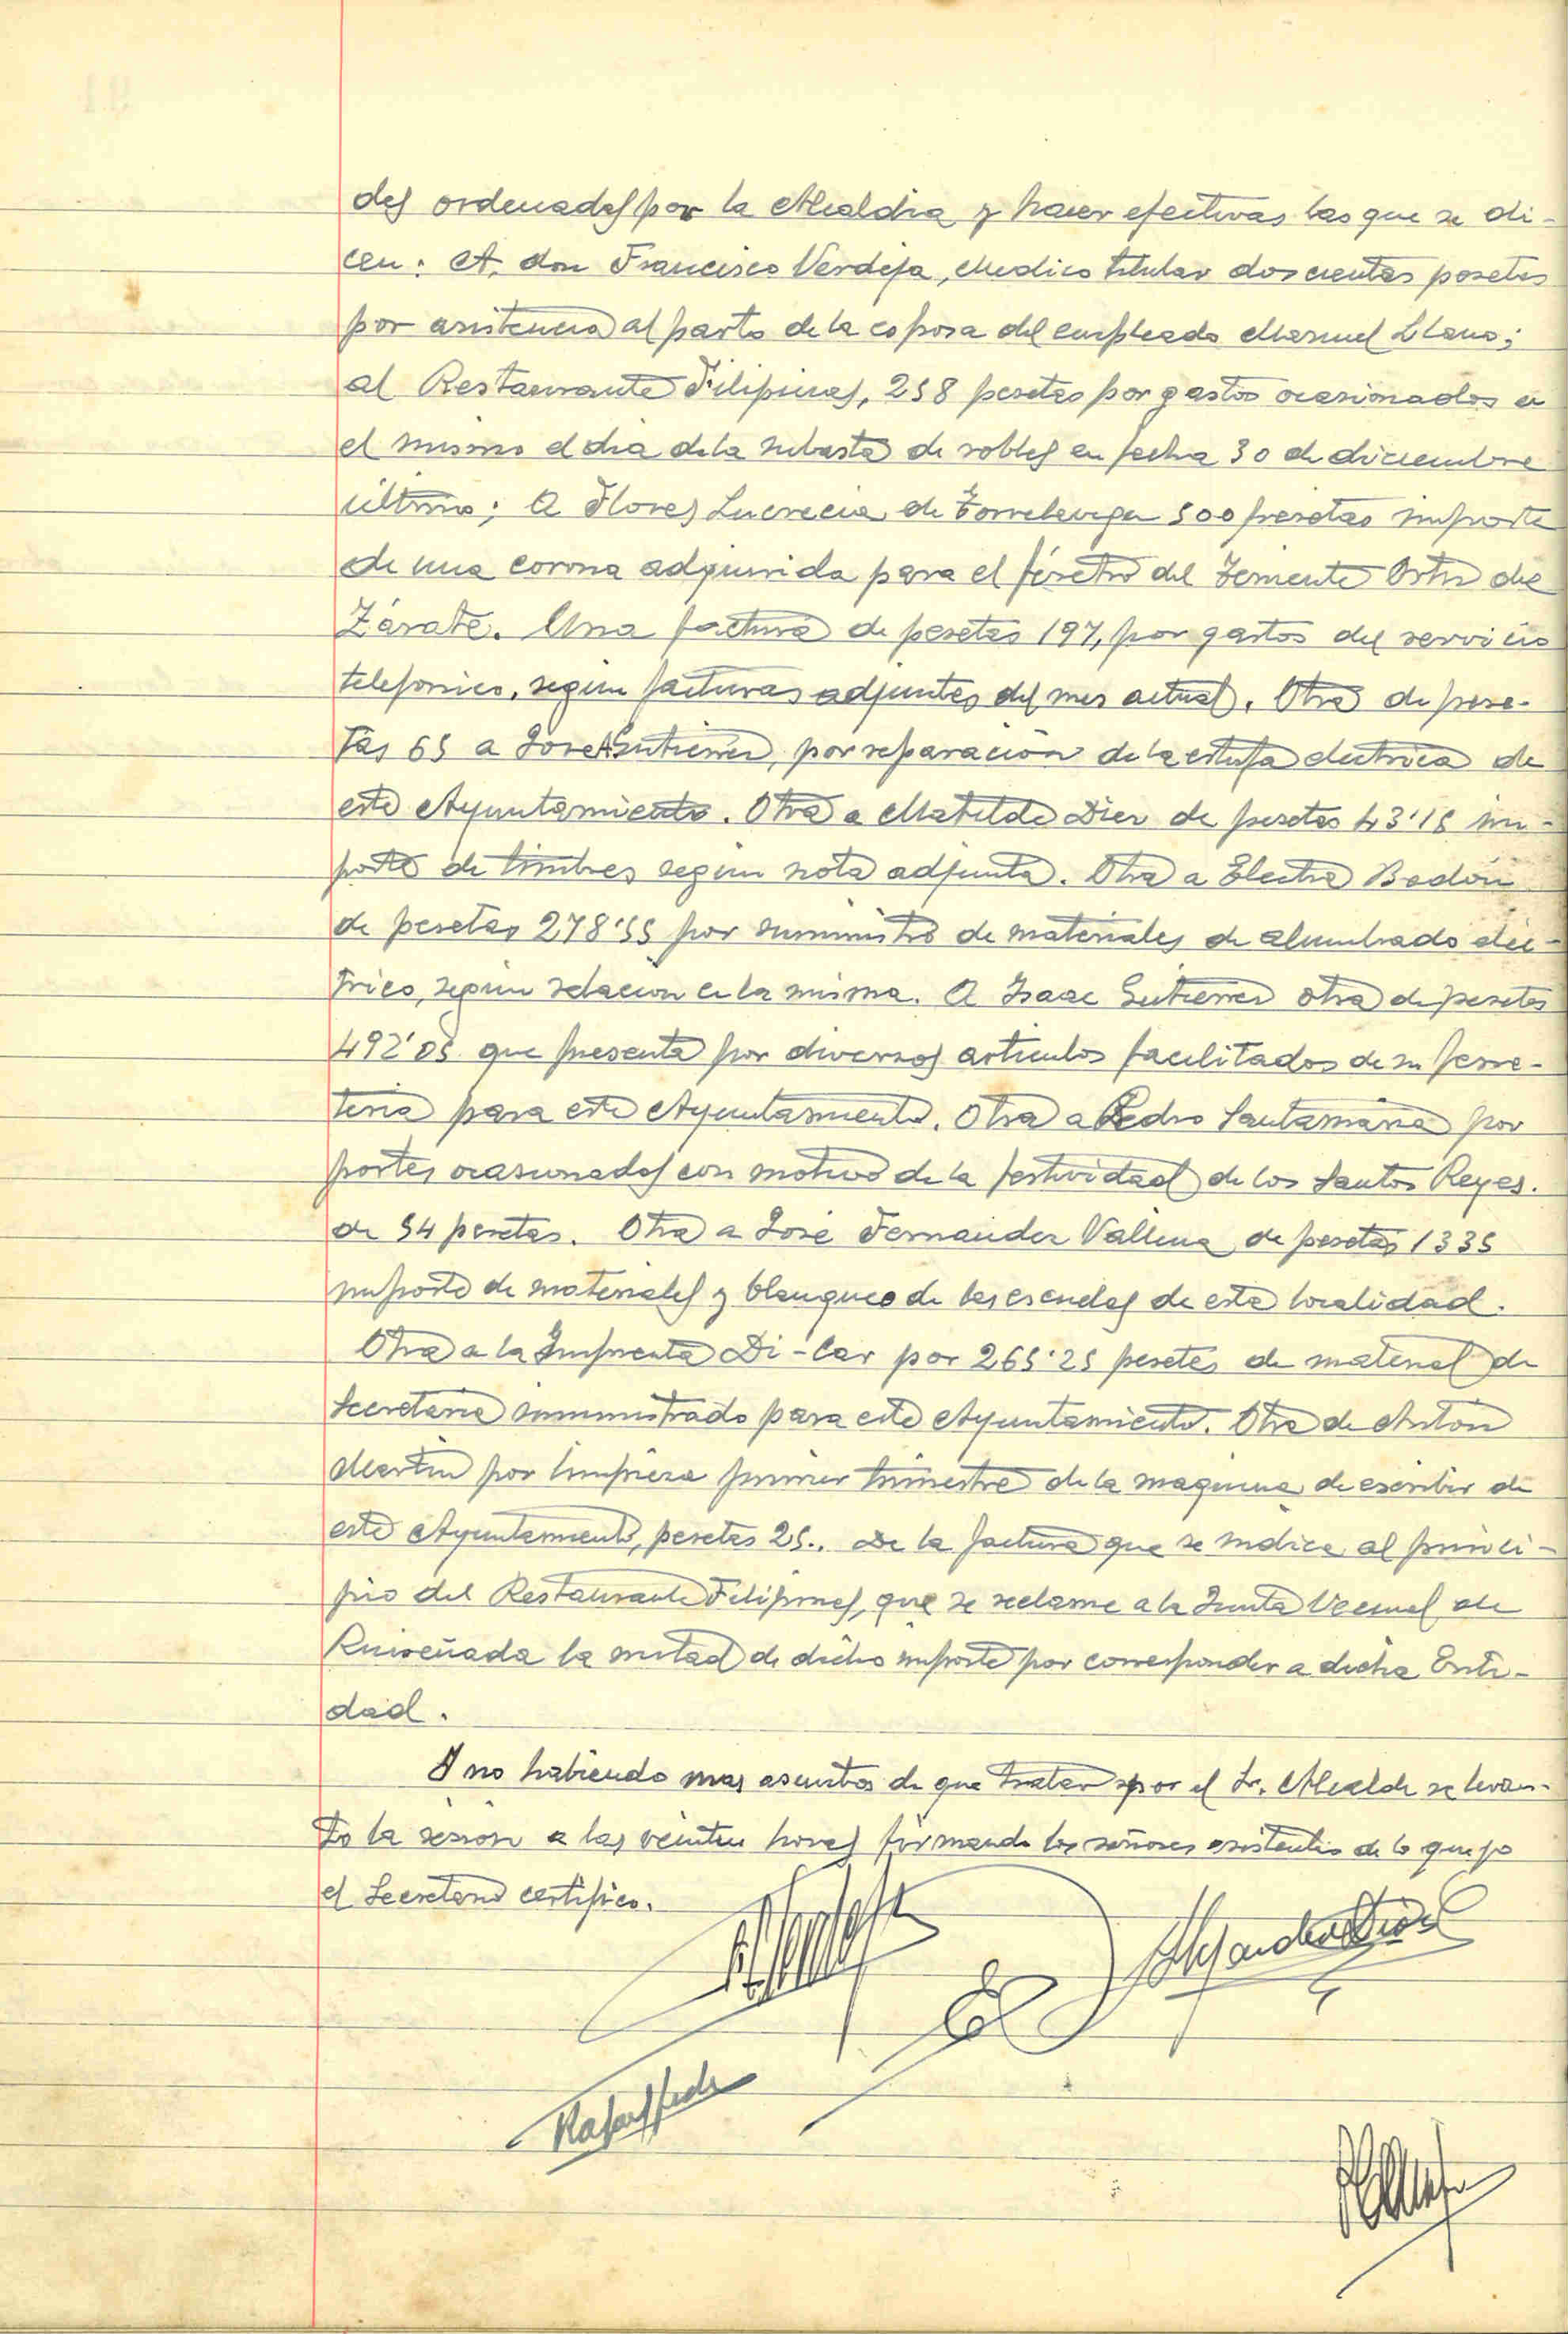 des ordenadas por la Alcaldia y hacer efectivas las que se di-
cen: A. don Francisco Verdeja, Medico titular doscientas pesetas
por asistencia al parto de la esposa del empleado Manuel Llano;
al Restaurante Filipinas, 258 pesetas por gastos ocasionados en
el mismo el dia de la subasta de robles en fecha 30 de diciembre
último; A Flores Lucrecia de Torrelavega 500 pesetas importe
de una corona adquirida para el féretro del Teniente Ortiz de
Zárate. Una factura de pesetas 197, por gastos del servicio
telefonico, segun facturas adjuntas del mes actual. Otra de pese-
tas 65 a Jose Gutierrez, por reparación de la estufa electrica de
este Ayuntamiento. Otra a Matilde Diez de pesetas 43'15 im-
porte de timbres segun nota adjunta. Otra a Electra Bedón
de pesetas 278'55 por suministro de materiales de alumbrado eléc-
trico, segun relacion en la misma. A Isaac Gutierrez otra de pesetas
492'05 que presenta por diversos articulos facilitados de su ferre-
teria para este Ayuntamiento. Otra a Pedro Santamaria por
portes ocasionados con motivo de la festividad de los Santos Reyes.
de 54 pesetas. Otra a José Fernandez Vallina de pesetas 1335
importe de materiales y blanqueo de las escuelas de esta localidad.
Otra a la Imprenta Di-Car por 265'25 pesetas de material de
Secretaria suministrado para este Ayuntamiento. Otra de Antón
Martin por limpieza primer trimestre de la maquina de escribir de
este Ayuntamiento, pesetas 25.. De la factura que se indica al princi-
pio del Restaurante Filipinas, que se reclame a la Junta Vecinal de
Ruiseñada la mitad de dicho importe por corresponder a dicha Enti-
dad.
Y no habiendo mas asuntos de que tratar por el Sr. Alcalde se levan-
to la sesión a las veinte horas firmando los señores asistentes de lo que yo
el Secretario certifico.
Alejandro
Rafael